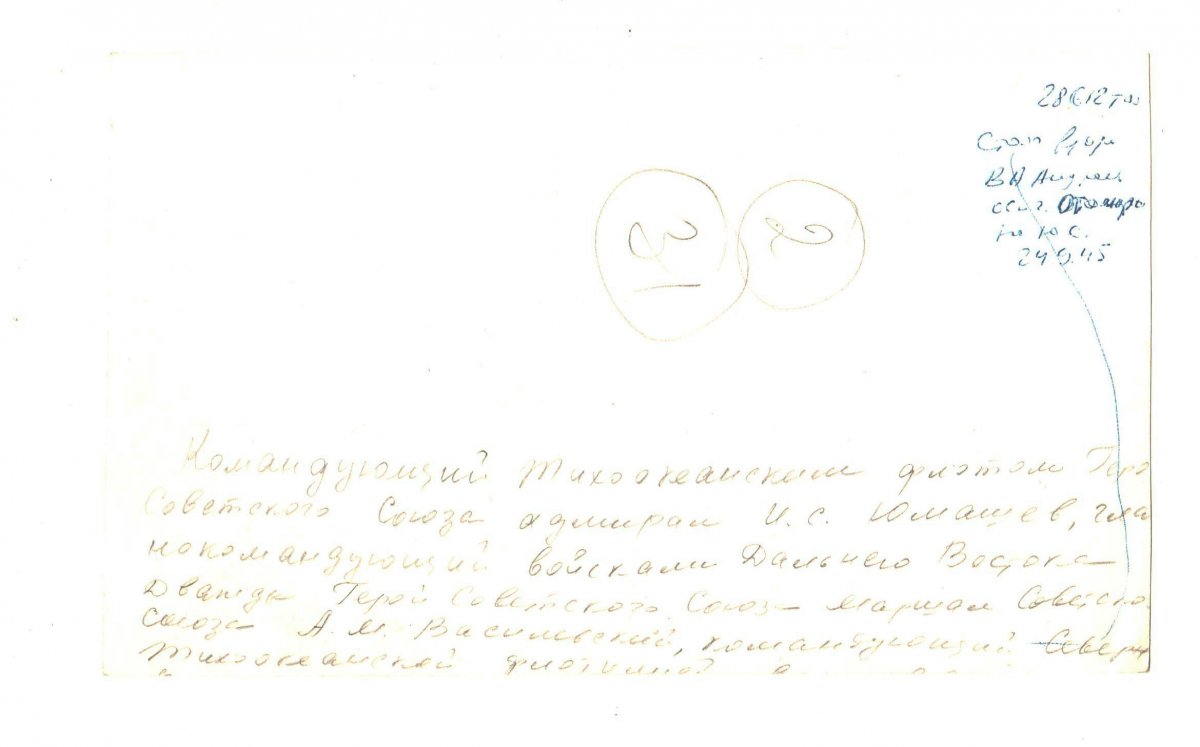 24.9.45
Командующий Тихоокеанским флотом Геро
Советского Союза адмирал И.С. Юмашев, гла
нокомандующий войсками Дальнего Востока
Дважды Герой Советского Союза маршал Советско
Союза А.М. Василевский, командующий Северн
Тихоокеанской флотилией